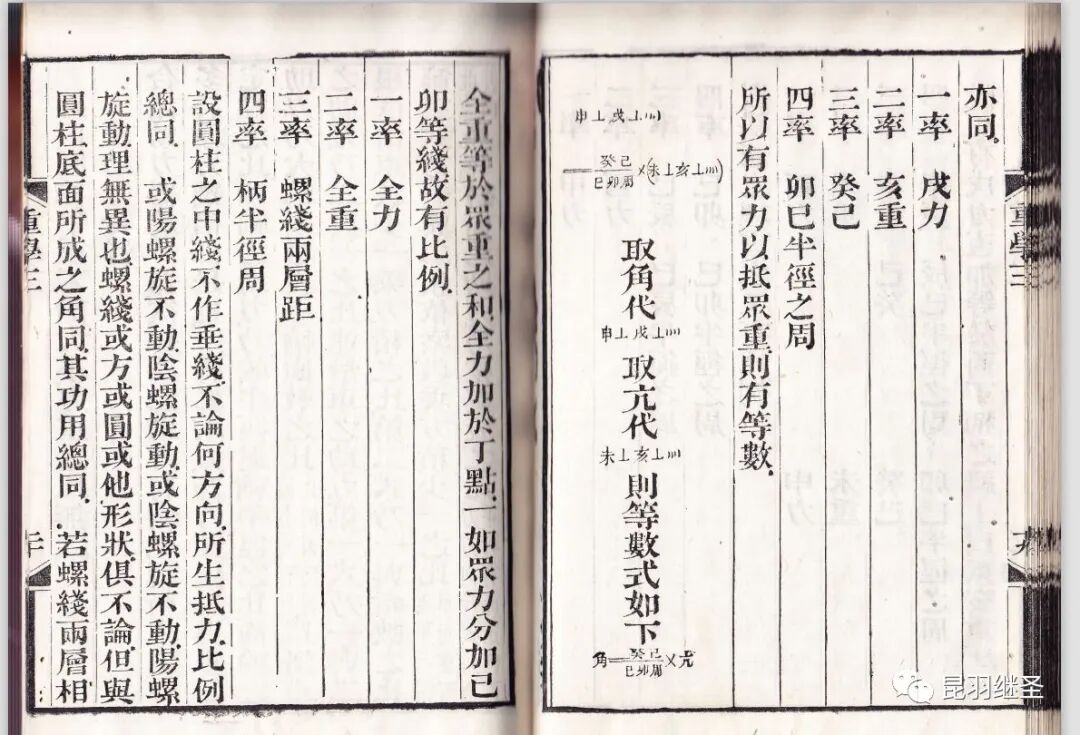 亦同
一率　戌力
二率　亥重
三率　癸己
四率　卯巳半徑之周
所以有眾力以抵眾重則有等數
申⊥戌⊥灬
＝癸己/己卯周×(未⊥亥⊥灬)
取角代申⊥戌⊥灬取亢代未⊥亥⊥灬則等數式如下
角＝癸己/己卯周×亢
重學三
全重等於眾重之和全力加於丁點一如眾力分加已
卯等綫故有比例
一率　全力
二率　全重
三率　螺綫兩層距
四率　柄半徑周
設圓柱之中綫不作垂綫不論何方向所生抵力比例
總同　或陽螺旋不動陰螺旋動或陰螺旋不動陽螺
旋動理無異也螺綫或方或圓或他形狀俱不論但與
圓柱底面所成之角同其功用總同　若螺綫兩層相
重學三
昆羽继圣